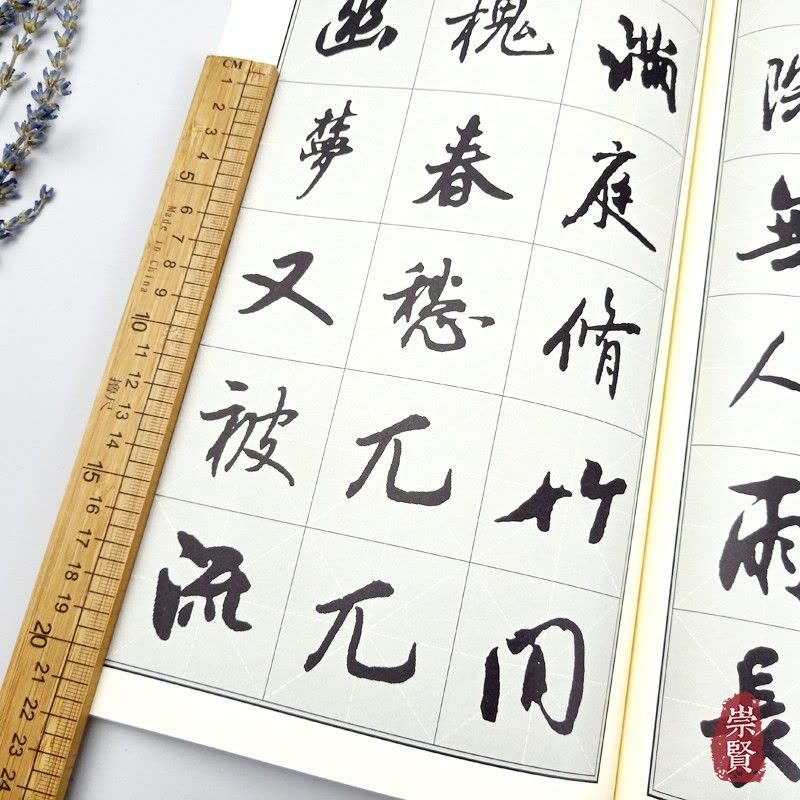 無人雨長
滿庭脩竹間
槐春愁兀兀
幽夢又被流
CM
1 2 3 4 5 6 7 8 9 10 11 12 13 14 15 16 17 18 19 20 21 22 23 24
Made in China
崇賢